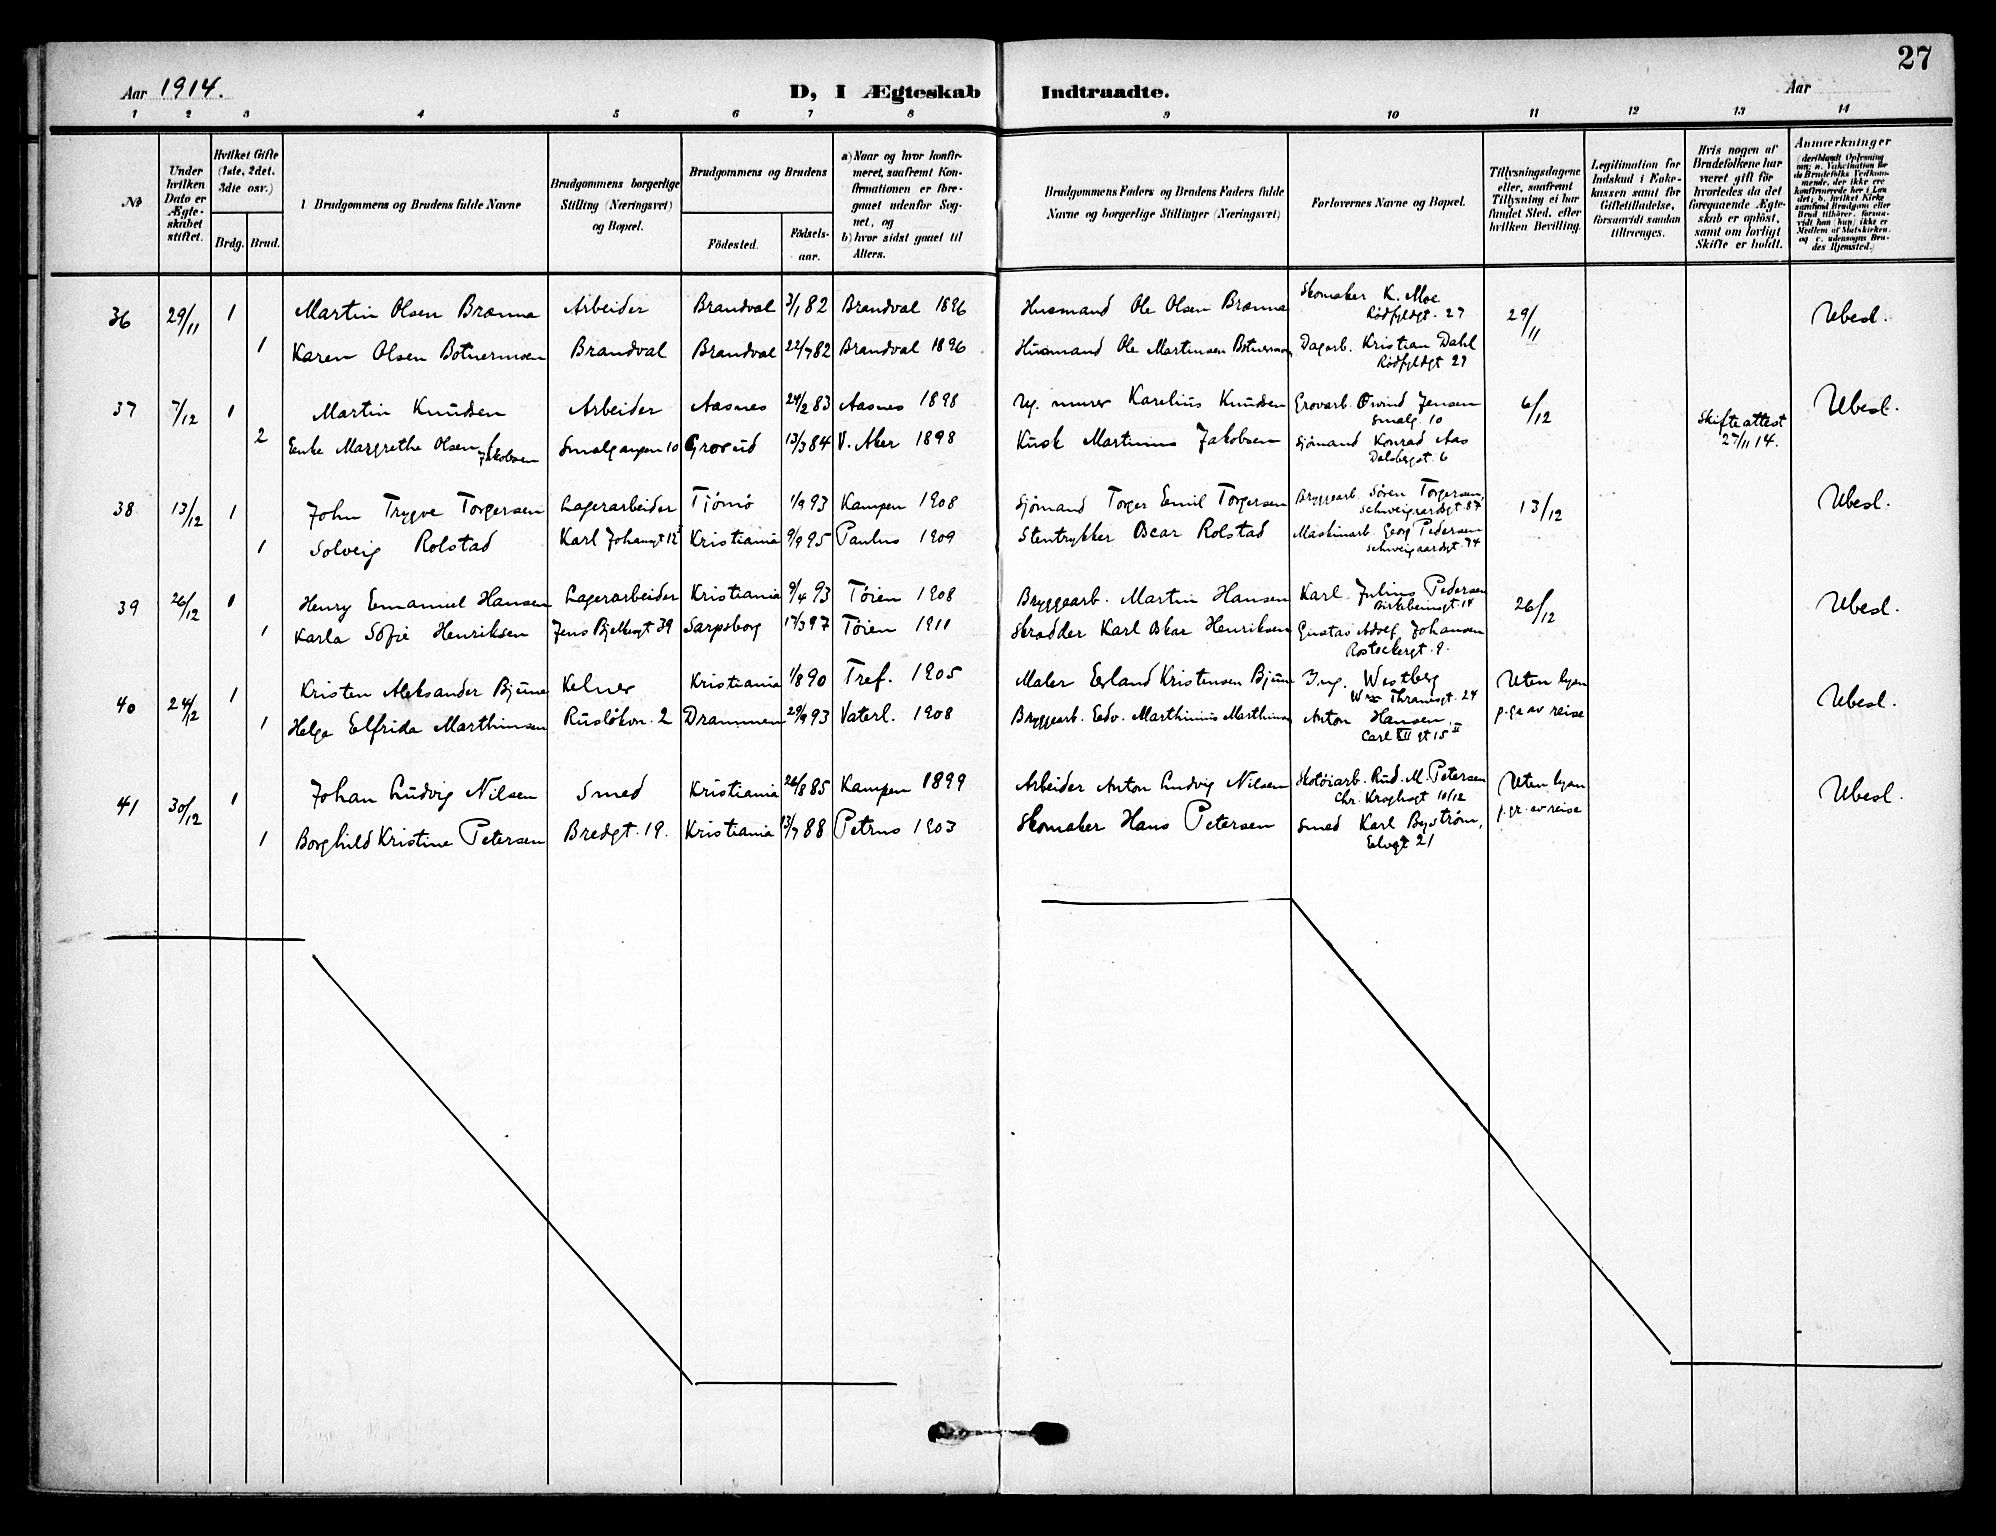 27
Aar 1914. D, I Ægteskab Indtraadte. Aar
1 2 3 4 5 6 7 8 9 10 11 12 13 14
No
Under hvilken Dato er Ægteskabet stiftet.
Hvilket Gifte (1ste, 2det, 3die osv.)
Brdg. Brud.
Brudgommens og Brudens fulde Navne
Brudgommens borgerlige Stilling (Næringsvei) og Bopæl.
Brudgommens og Brudens
Födested. Födselsaar.
a) Naar og hvor konfirmeret, saafremt Konfirmationen er foregaaet udenfor Sognet, og
b) hvor sidst gaaet til Alters.
Brudgommens Faders og Brudens Faders fulde Navne og borgerlige Stillinger (Næringsvei)
Forlovernes Navne og Bopæl.
Tillysningsdagene eller, saafremt Tillysning ei har fundet Sted, efter hvilken Bevilling.
Legitimation for Indskud i Enkekassen samt for Giftetilladelse, forsaavidt saadan tiltrænges.
Hvis nogen af Brudefolkene har været gift för hvorledes da det foregaaende Ægteskab er oplöst, samt om lovligt Skifte er holdt.
Anmærkninger
36 29/11 1 Martin Olsen Brænna Arbeider Brandval 3/1 82 Brandval 1896 Husmand Ole Olsen Brænna Skomaker K. Moe Rødfyldgt. 27 29/11 Ubesl.
1 Karen Olsen Botnermoen Brandval Brandval 22/7 82 Brandval 1896 Husmand Ole Martinsen Botnermoen Dagarb. Kristian Dahl Rødfyldgt 27
37 7/12 1 Martin Knudsen Arbeider Aasnes 24/2 83 Aasnes 1898 murer Karelius Knudsen Grovarb. Øivind Jensen Smalg. 10 6/12 Ubesl.
2 Enke Margrethe Olsen f. Jakobsen Smalgangen 10 Grorud 13/3 84 V. Aker 1898 Kusk Martinius Jakobsen Sjømand Konrad Aas Dalsbergst. 6 Skifteattest 27/11 14.
38 13/12 1 John Trygve Torgersen Lagerarbeider Tjømø 1/9 93 Kampen 1908 Sjømand Torger Emil Torgersen Bryggearb. Søren Torgersen, Schweigaardsgt. 87 13/12 Ubesl.
1 Solveig Rolstad Karl Johansgt 12 Kristiania 9/9 95 Paulus 1909 Stentrykker Oscar Rolstad Maskinarb. Georg Pedersen Schweigaardsgt. 74
39 26/12 1 Henry Emanuel Hansen Lagerarbeider Kristiania 9/4 93 Tøien 1908 Bryggearb. Martin Hansen Karl Julius Pedersen Birkbeinsgt. 14 26/12 Ubesl.
1 Karla Sofie Henriksen Jens Bjelkesgt 39 Sarpsborg 17/3 97 Tøien 1911 Skrædder Karl Oskar Henriksen Gustav Adolf Johansen Rostockergt. 9.
40 24/2 1 Kristen Aleksander Bjune Kelner Kristiania 1/8 90 Tref. 1905 Maler Erland Kristensen Bjune Ing. Westberg Thranesgt. 24 Uten lysn Ubesl.
1 Helga Elfrida Marthinsen Rusløkvn. 2 Drammen 29/9 93 Vaterl. 1908 Bryggearb. Edv. Marthinius Marthinsen Anton Hansen, Carl XII gt 15 II p. gr av reise
41 30/12 1 Johan Ludvig Nilsen Smed Kristiania 26/8 85 Kampen 1899 Arbeider Anton Ludvig Nilsen Skotøiarb. Rud. M. Petersen Chr. Kroghsgt 10/12 Uten lysn Ubesl.
1 Borghild Kristine Petersen Bredgt. 19. Kristiania 13/7 88 Petrus 1903 Skomaker Hans Petersen Smed Karl Byström, Elvegt 21 p. gr. av reise